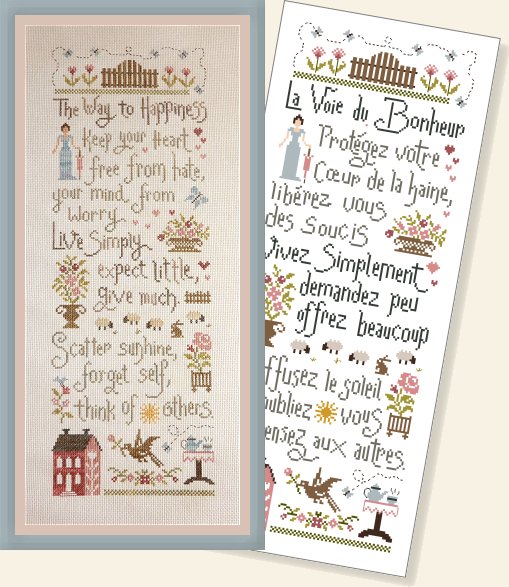 The Way to Happiness
Keep your Heart
free from hate,
your mind from
Worry.
Live Simply
expect little,
give much.
Scatter sunhine,
forget self,
think of others.
La Voie du Bonheur
Protégez votre
Cœur de la haine,
libérez vous
des Soucis
Vivez Simplement
demandez peu
offrez beaucoup
ffusez le soleil
oubliez vous
ensez aux autres.